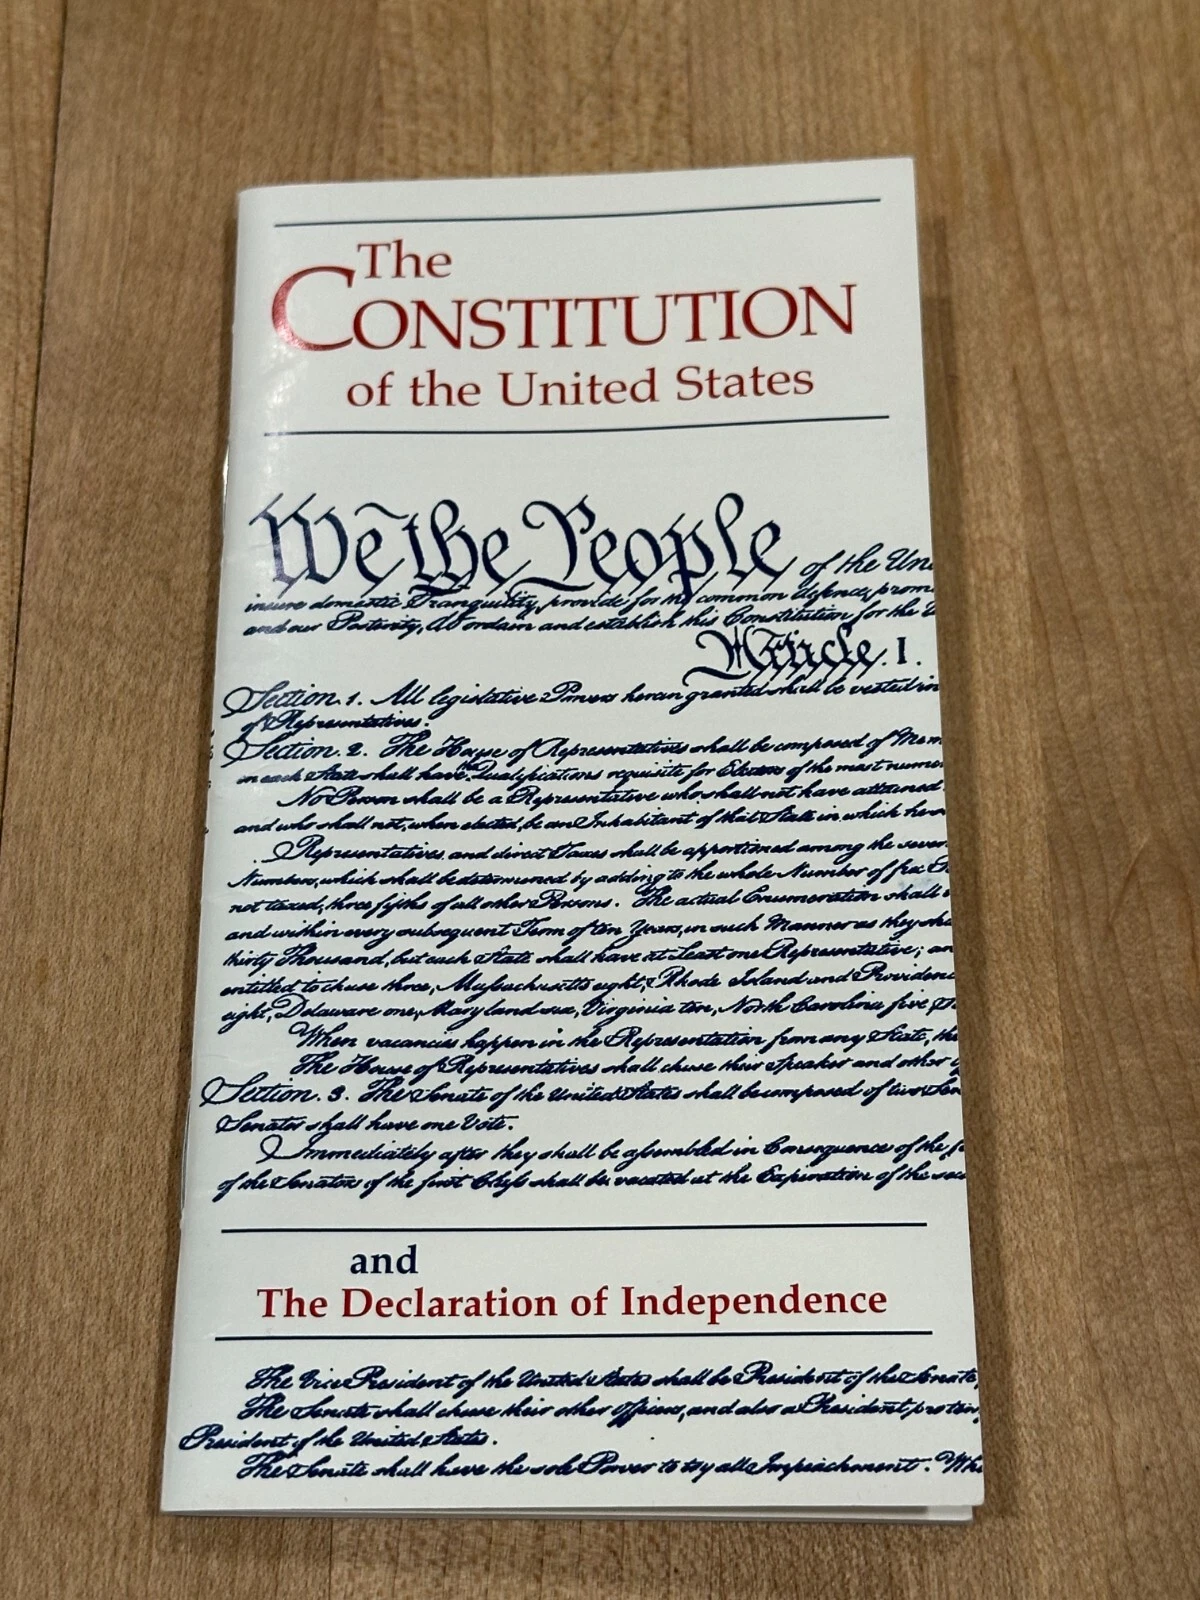 The
CONSTITUTION
of the United States
We the People of the Un
insure domestic Tranquility, provide for the common defence, prom
and our Posterity, do ordain and establish this Constitution for the U
Article. I.
Section. 1. All legislative Powers herein granted shall be vested in
of Representatives.
Section. 2. The House of Representatives shall be composed of Mem
in each State shall have the Qualifications requisite for Electors of the most numer
No Person shall be a Representative who shall not have attained
and who shall not, when elected, be an Inhabitant of that State in which he
Representatives and direct Taxes shall be apportioned among the sever
Numbers, which shall be determined by adding to the whole Number of free
not taxed, three fifths of all other Persons. The actual Enumeration shall
and within every subsequent Term of ten Years, in such Manner as they sha
thirty Thousand, but each State shall have at Least one Representative; an
entitled to chuse three, Massachusetts eight, Rhode Island and Providenc
eight, Delaware one, Maryland six, Virginia ten, North Carolina five,
When vacancies happen in the Representation from any State, the
The House of Representatives shall chuse their Speaker and other
Section. 3. The Senate of the United States shall be composed of two Sen
Senator shall have one Vote.
Immediately after they shall be assembled in Consequence of the
of the Senators of the first Class shall be vacated at the Expiration of the sec
and
The Declaration of Independence
The Vice President of the United States shall be President of the Senate,
The Senate shall chuse their other Officers, and also a President pro tem
President of the United States.
The Senate shall have the sole Power to try all Impeachments. Whe